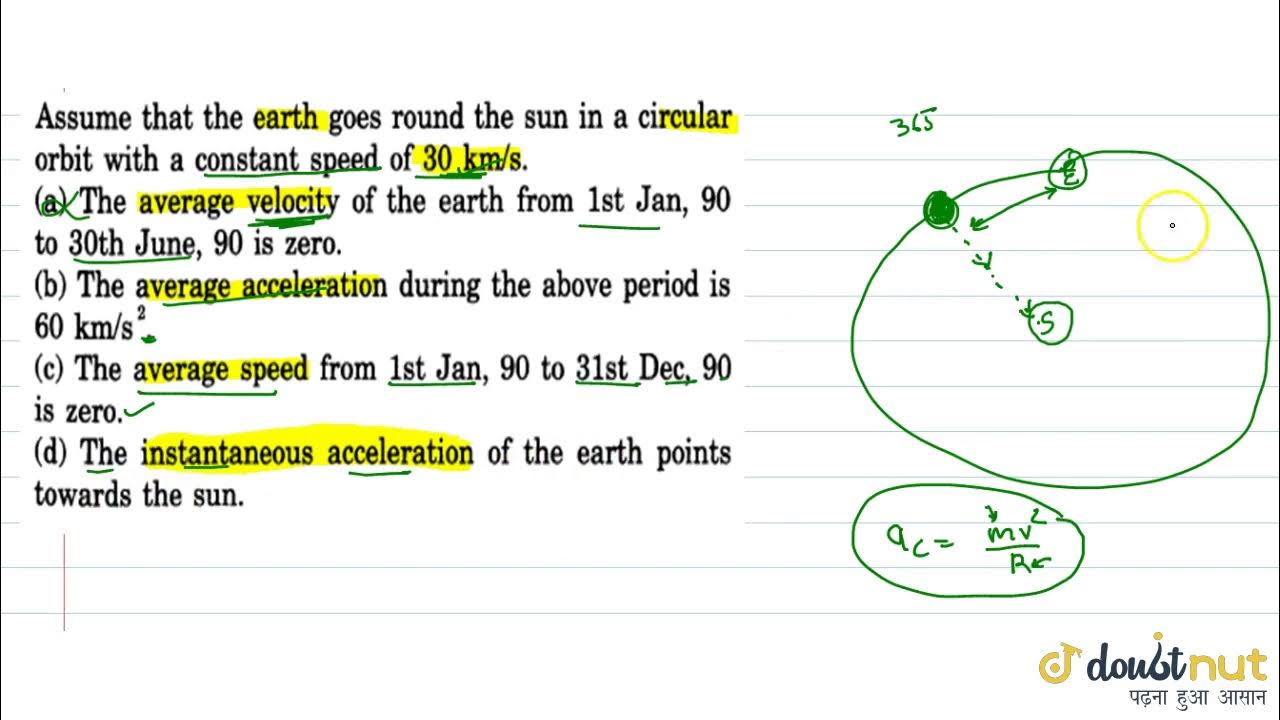 Assume that the earth goes round the sun in a circular
orbit with a constant speed of 30 km/s.
(a) The average velocity of the earth from 1st Jan, 90
to 30th June, 90 is zero.
(b) The average acceleration during the above period is
60 km/s²
(c) The average speed from 1st Jan, 90 to 31st Dec, 90
is zero.
(d) The instantaneous acceleration of the earth points
towards the sun.
365
E
S
a_c = mv²/R
doubtnut
पढ़ना हुआ आसान